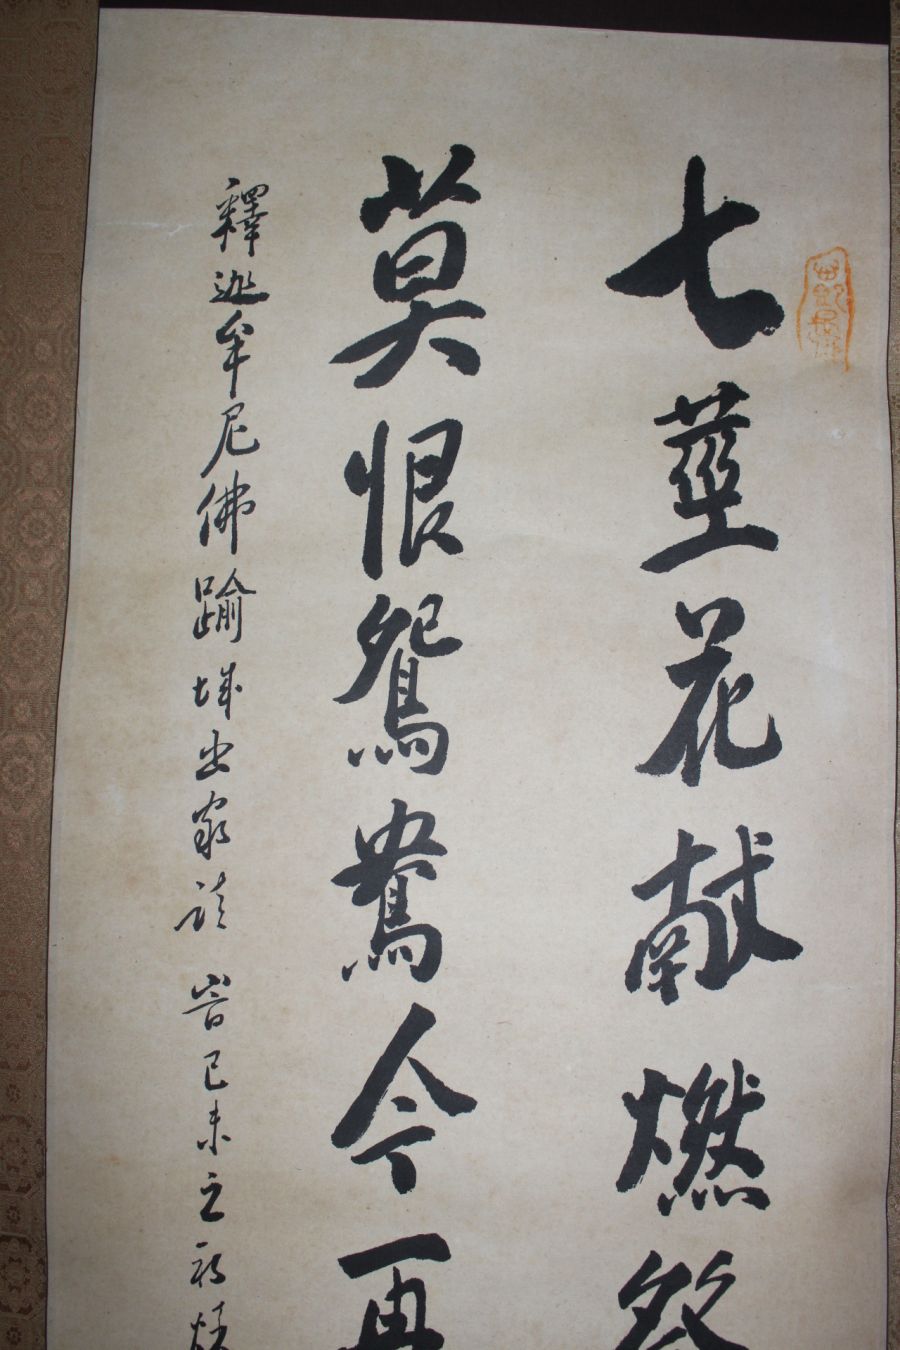 七莖花献燃
莫恨鴛鴦今再
釋迦牟尼佛踰城出家
己未之